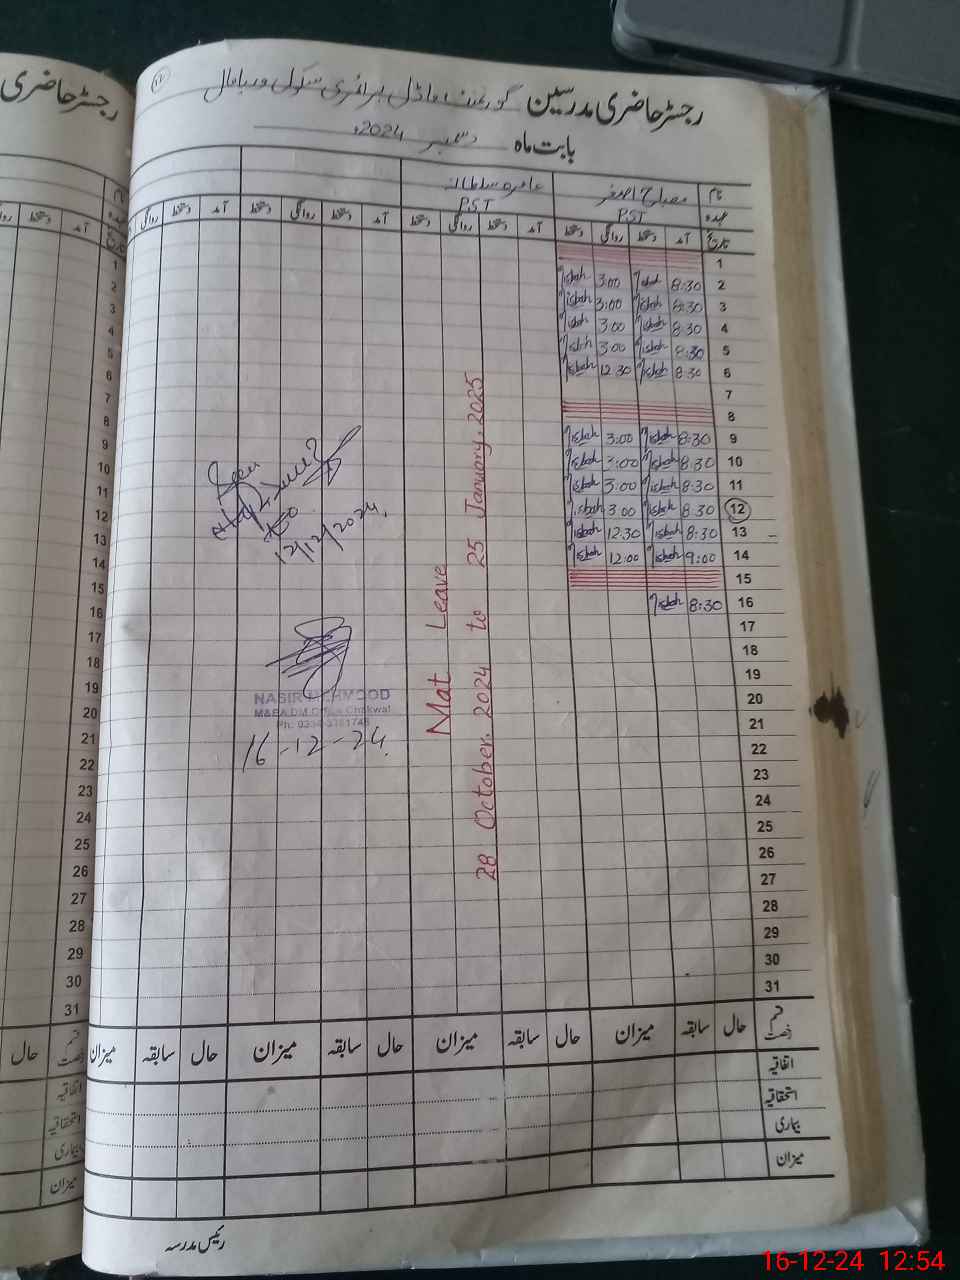 رجسٹر حاضری مدرسین گورنمنٹ ماڈل پرائمری سکول
بابت ماہ دسمبر 2024ء
نام مصباح اصغر عامرہ سلطانہ
عہدہ PST PST
تاریخ آمد دستخط روانگی دستخط آمد دستخط روانگی دستخط آمد دستخط روانگی دستخط آمد دستخط روانگی
1
2 8:30 Misbah 3:00 Misbah
3 8:30 Misbah 3:00 Misbah
4 8:30 Misbah 3:00 Misbah
5 8:30 Misbah 3:00 Misbah
6 8:30 Misbah 12:30 Misbah
7
8
9 8:30 Misbah 3:00 Misbah
10 8:30 Misbah 3:00 Misbah
11 8:30 Misbah 3:00 Misbah
12 8:30 Misbah 3:00 Misbah
13 8:30 Misbah 12:30 Misbah
14 9:00 Misbah 12:00 Misbah
15
16 8:30 Misbah
17
18
19
20
21
22
23
24
25
26
27
28
29
30
31
Mat Leave
28 October. 2024 to 25 January. 2025
Seen
12/12/2024.
NASIR MEHMOOD
M&EA DM Office Chakwal
16-12-24.
قسم رخصت حال سابقہ میزان حال سابقہ میزان حال سابقہ میزان حال سابقہ میزان
اتفاقیہ
استحقاقیہ
بیماری
میزان
رئیس مدرسہ
رجسٹر حاضری
نام
عہدہ
تاریخ
آمد دستخط
1
2
3
4
5
6
7
8
9
10
11
12
13
14
15
16
17
18
19
20
21
22
23
24
25
26
27
28
29
30
31
قسم رخصت حال
اتفاقیہ
استحقاقیہ
بیماری
میزان
16-12-24 12:54